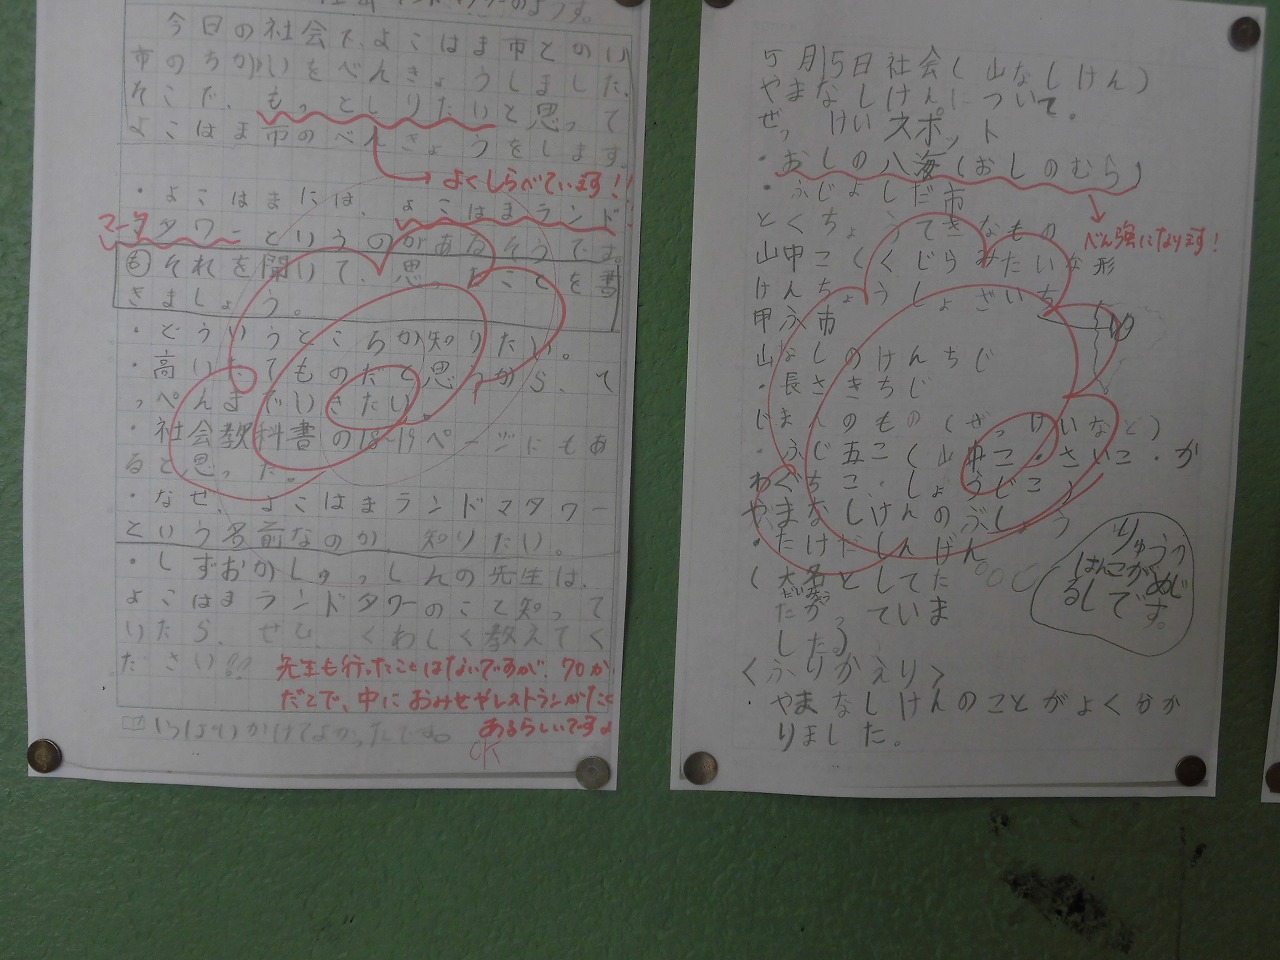 今日の社会で、よこはま市とかい
市のちがいをべんきょうしました。
そこで、もっとしりたいと思って
よこはま市のべんきょうをします。
よくしらべています!!
・よこはまには、よこはまランド
マーク
タワーというのがあるそうです。
も それを聞いて、思ったことを書
きましょう。
・どういうところか知りたい。
・高いたてものだと思うから、て
っぺんまでいきたい。
・社会教科書の18~19ページにもあ
ると思った。
・なぜ、よこはまランドマタワー
という名前なのか 知りたい。
・しずおかしゅっしんの先生は、
よこはまランドタワーのこと知って
いたら、ぜひ、くわしく教えてく
ださい!!
先生も行ったことはないですが、70か
だてで、中におみせやレストランがたく
あるらしいですよ
OK
5月15日社会(山なしけん)
やまなしけんについて。
ぜっけいスポット
・おしの八海(おしのむら)
・ふじよしだ市
べん強になります!
とくちょうてきなもの
山中こ くじらみたいな形
けんちょうしょざいち
甲ふ市
山なしのけんちじ
・長さきちじ
じまんのもの(ぜっけいなど)
・ふじ五こ(山中こ・さいこ・か
わぐちこ・しょうじこ)
やまなしけんのぶしょう
・たけだしんげん
(大名としてた
だいみょう
たかっていま
した)
りゅうっ
はんこがめじ
るしです。
<ふりかえり>
・やまなしけんのことがよく分か
りました。